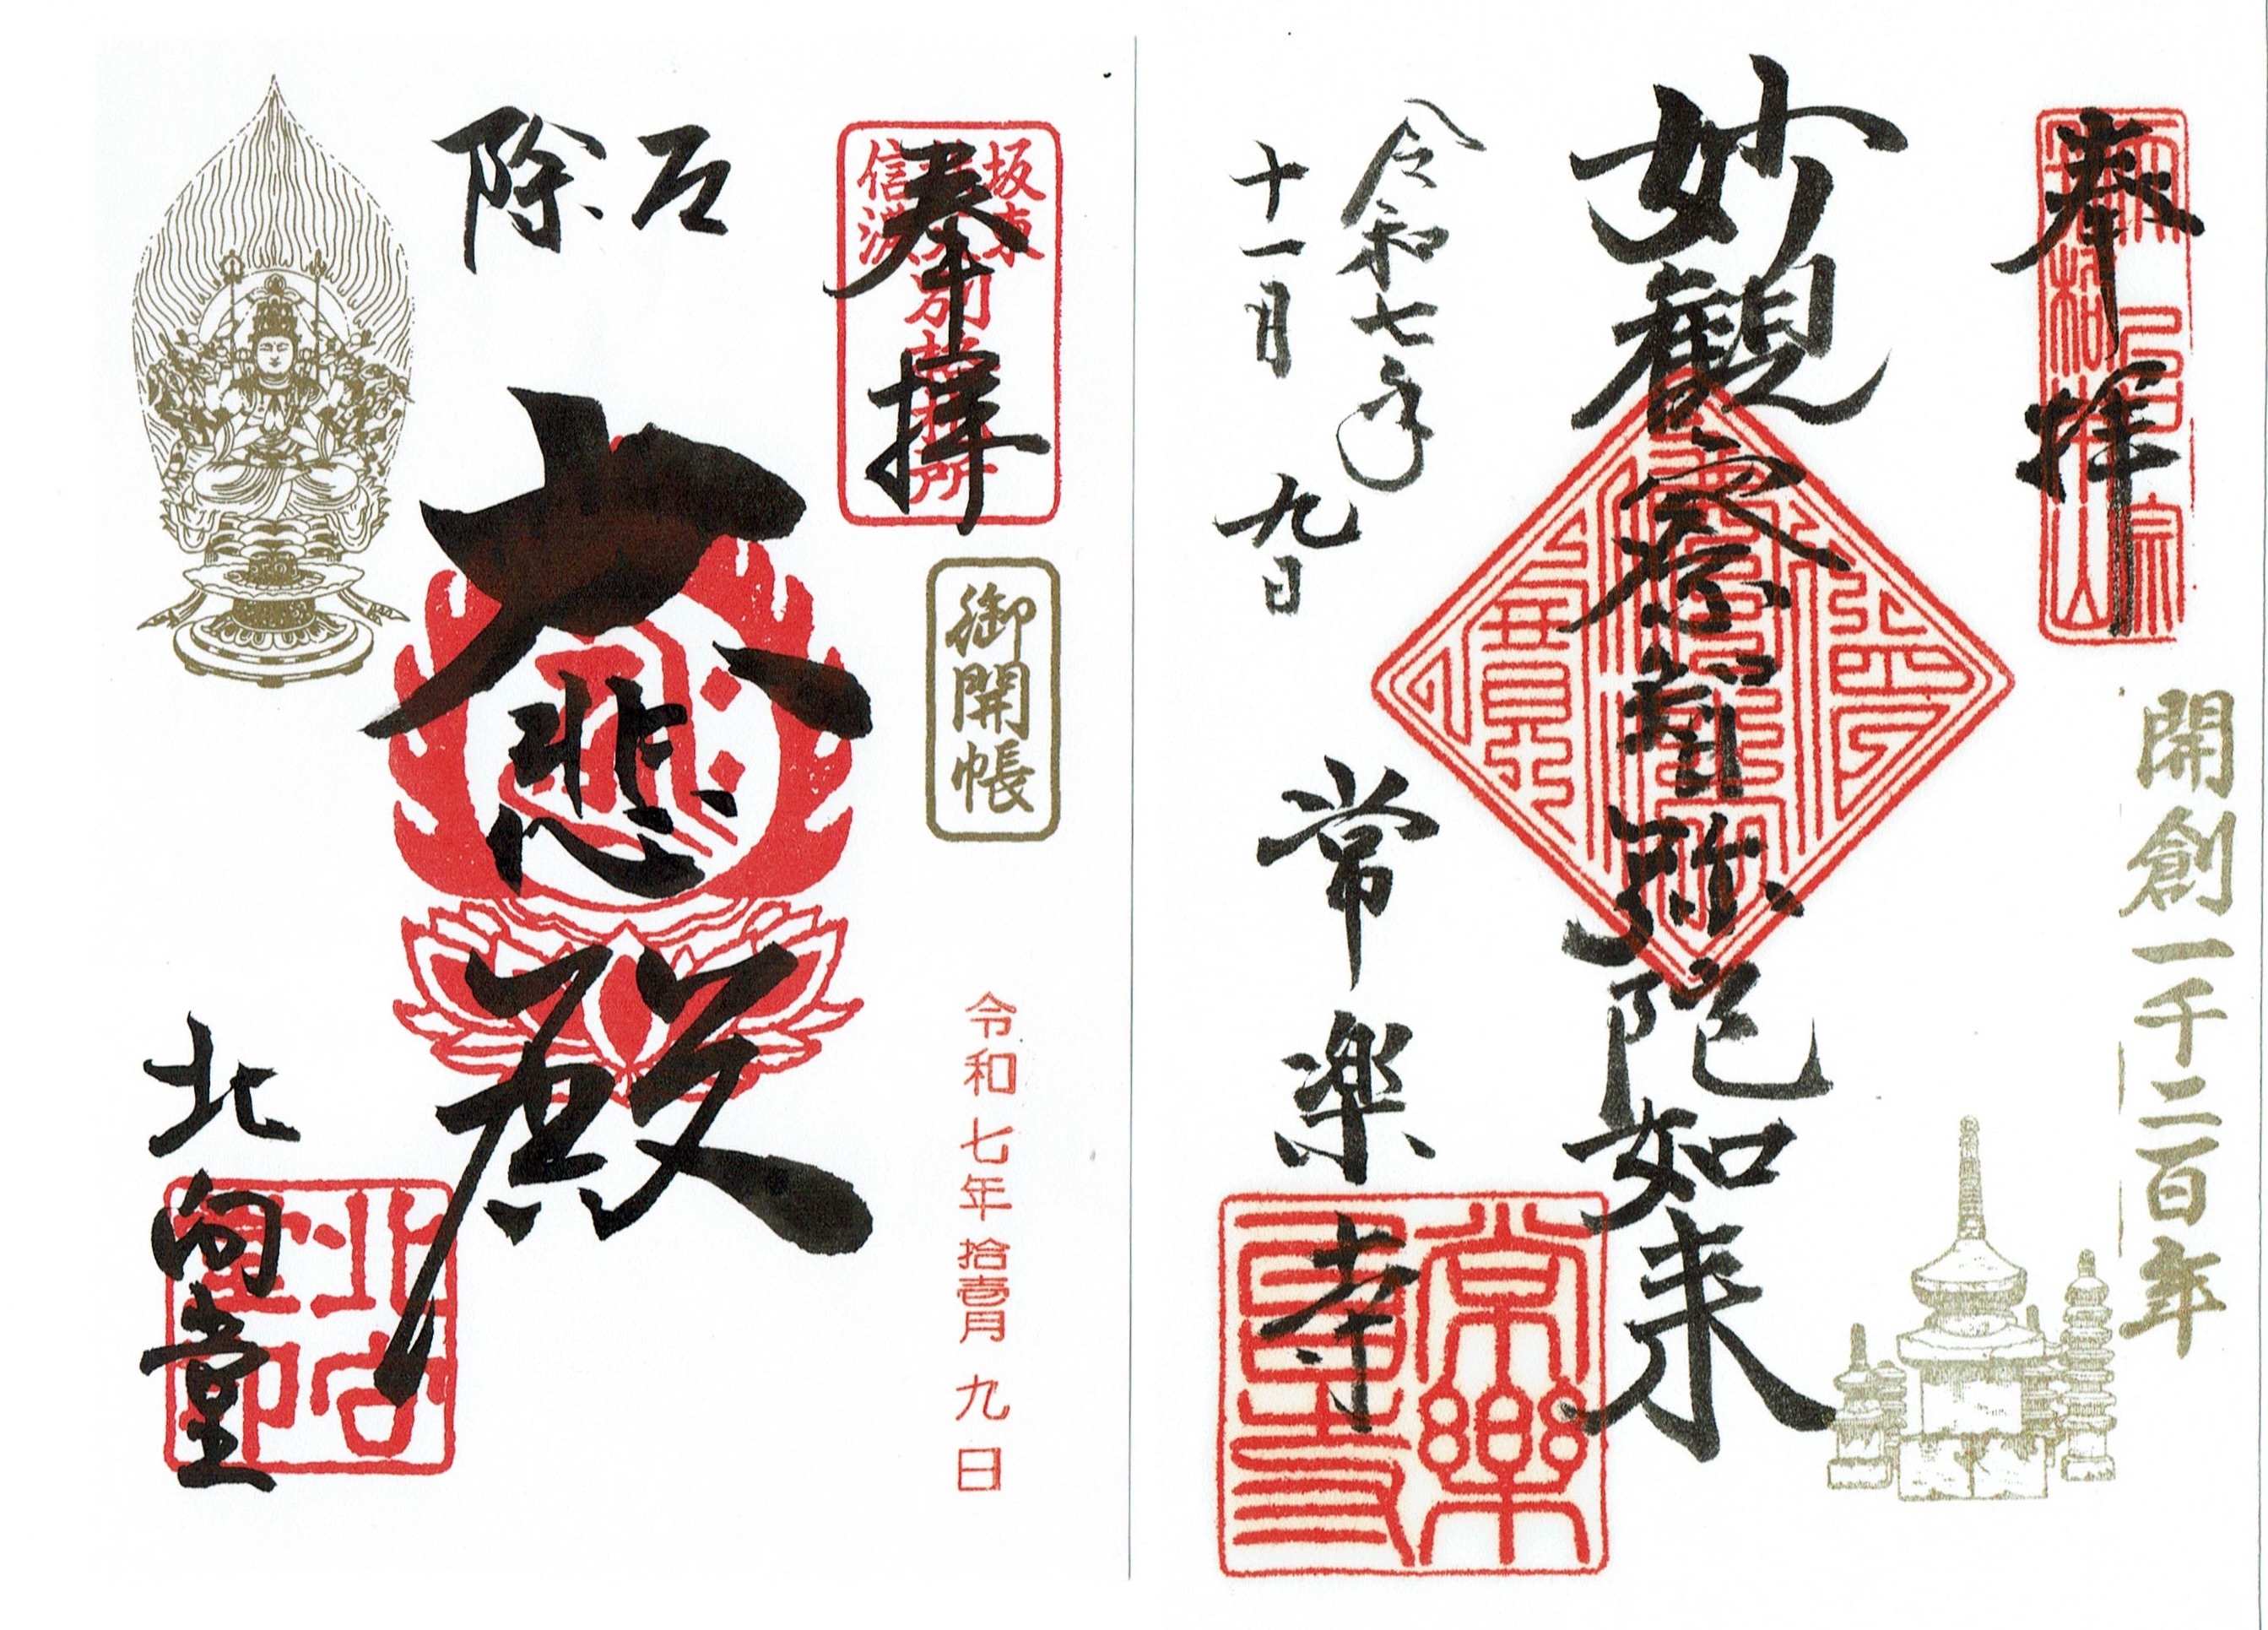 奉拝
開創一千二百年
妙観察智弥陀如来
令和七年
十一月九日
常楽寺
常樂
坂東
信濃
奉拝
御開帳
令和七年拾壱月九日
厄除
大悲殿
北向堂